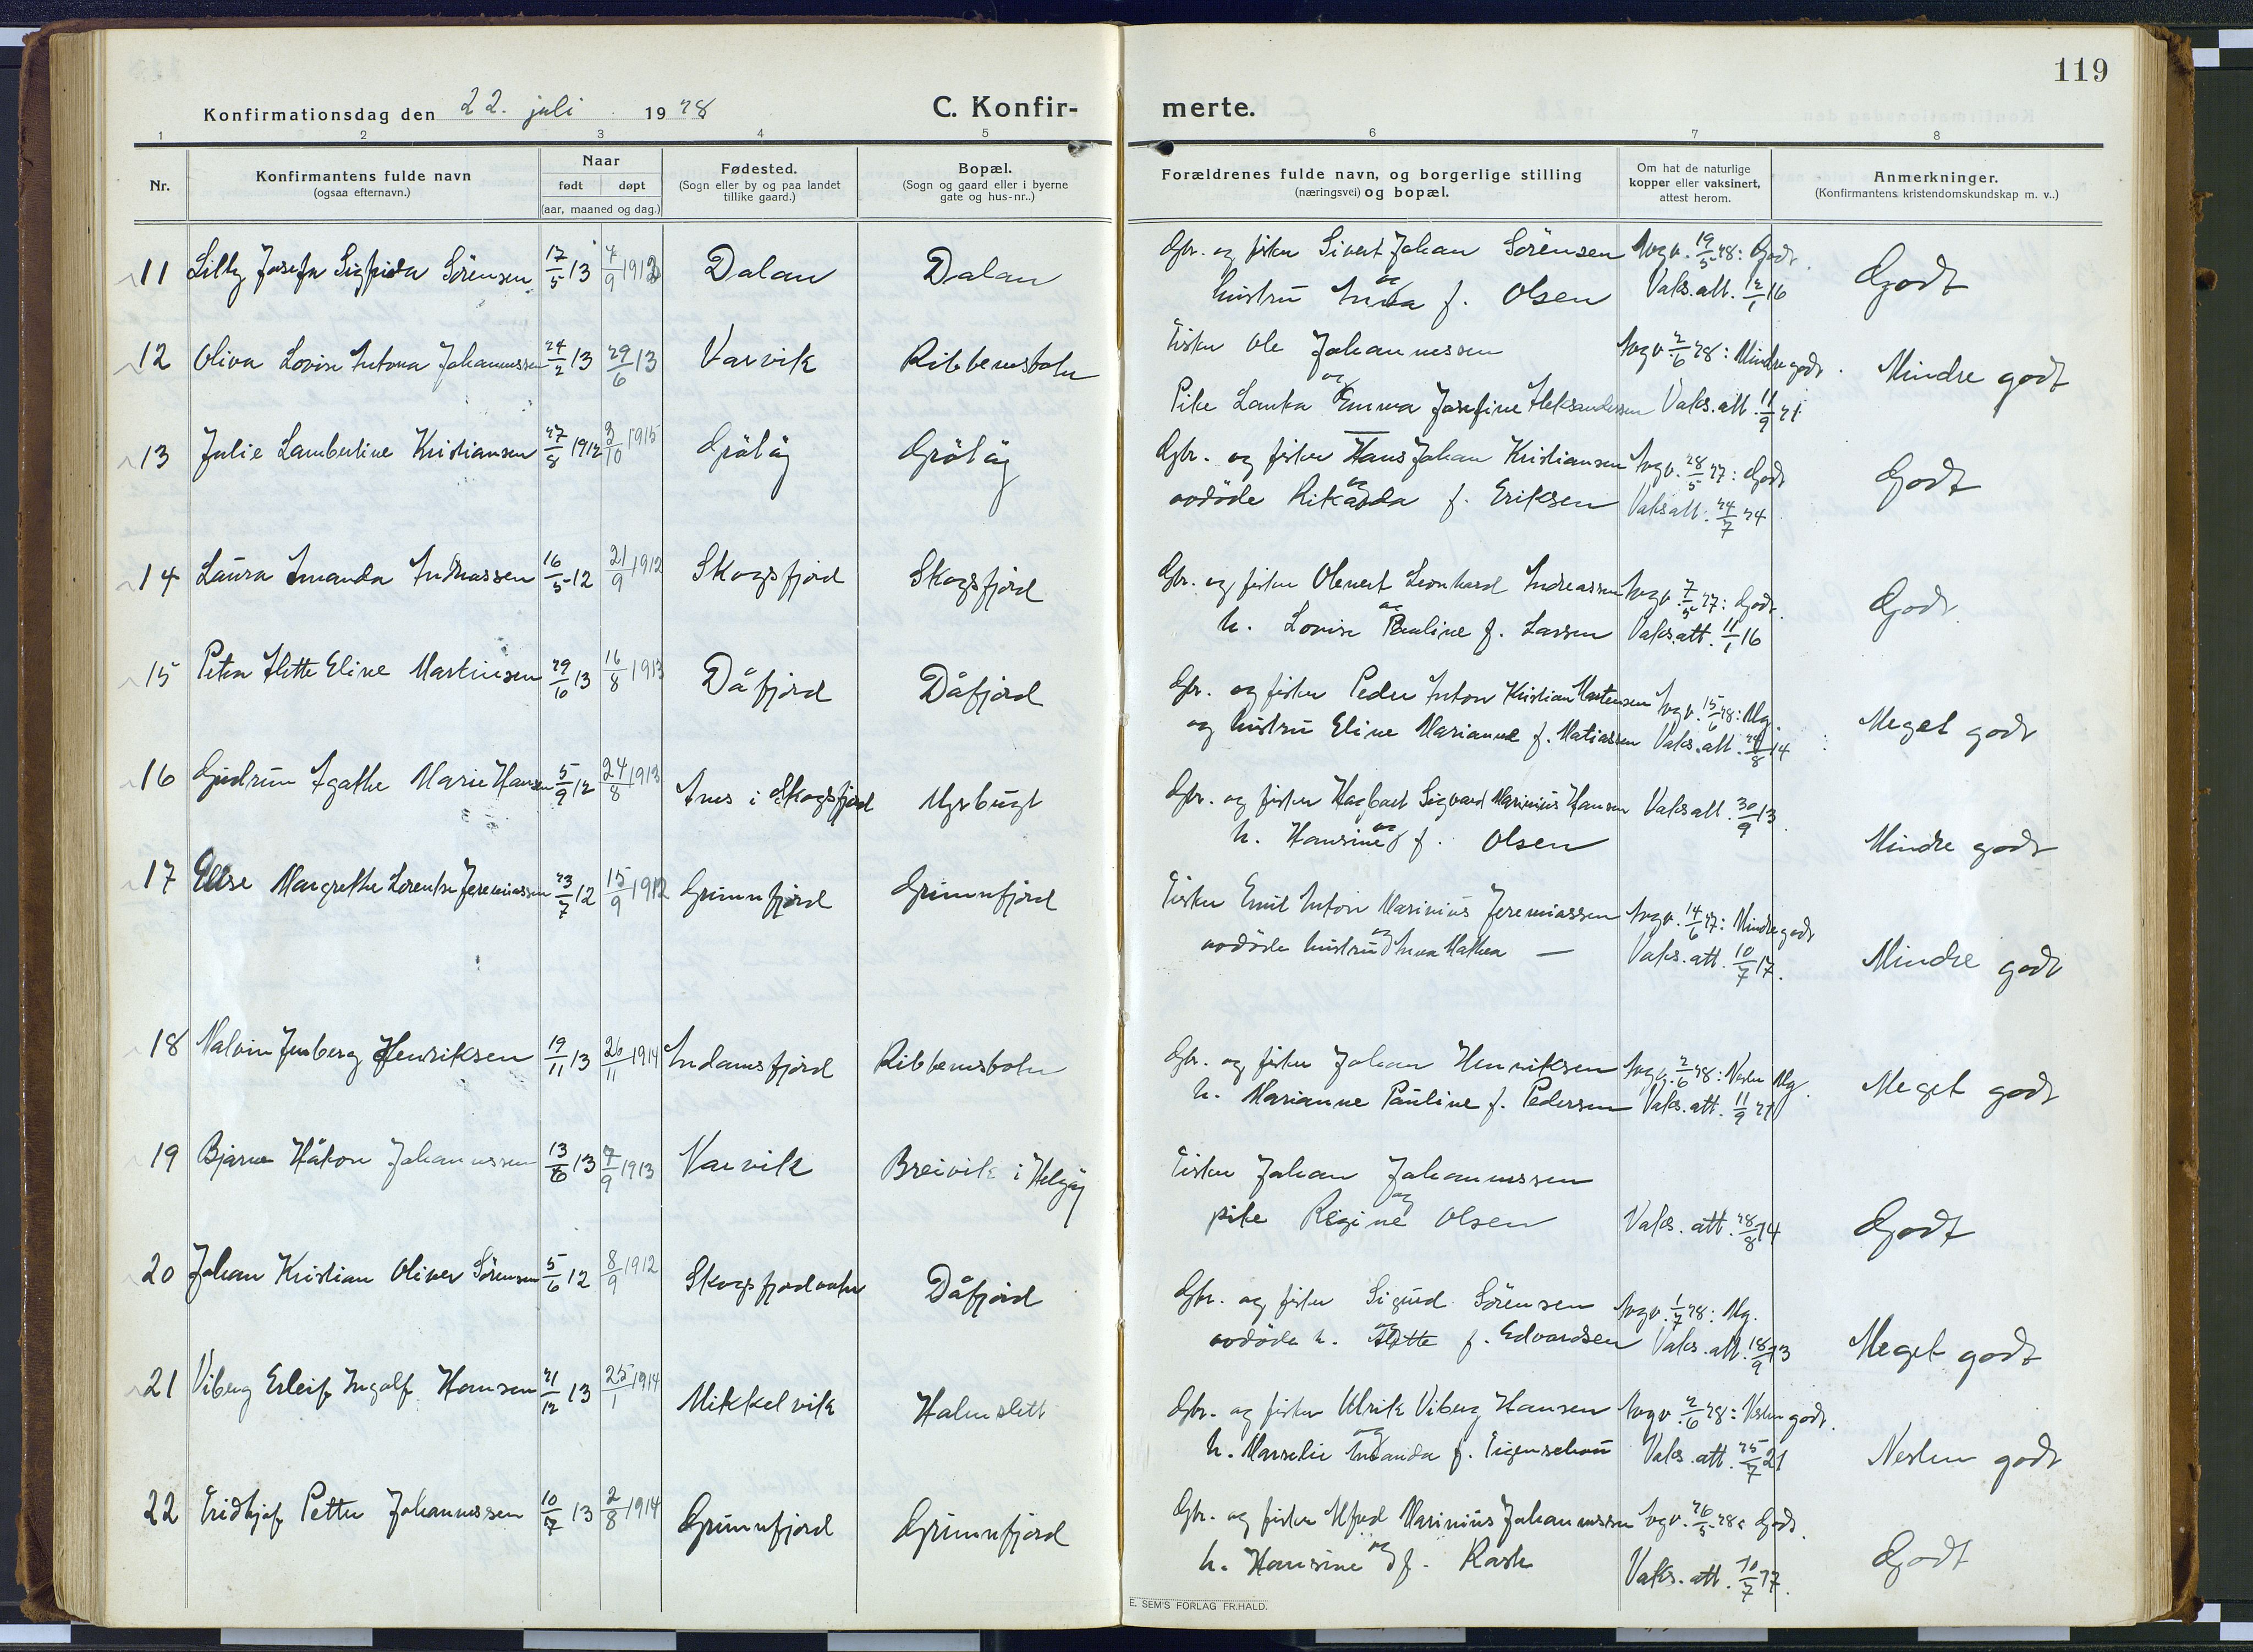 119
Konfirmationsdag den 22. juli 1928
C. Konfir-
merte.
1 2 3 4 5 6 7 8
Nr.
Konfirmantens fulde navn
(ogsaa efternavn.)
Naar
født døpt
(aar, maaned og dag.)
Fødested.
(Sogn eller by og paa landet
tillike gaard.)
Bopæl.
(Sogn og gaard eller i byerne
gate og hus-nr..)
Forældrenes fulde navn, og borgerlige stilling
(næringsvei) og bopæl.
Om hat de naturlige
kopper eller vaksinert,
attest herom.
Anmerkninger.
(Konfirmantens kristendomskundskap m. v..)
11 Lilly Josefa Sigfrida Sörensen 17/5 13 7/9 1913 Dalan Dalan
Gbr. og fisker Sivert Johan Sörensen Avgv. 19/5 28: Godt.
og
hustru Anna f. Olsen Vaks. att. 12/1 16
Godt
12 Oliva Lovise Antona Johannessen 24/2 13 29/6 13 Varvik Ribbenesbotn
Fisker Ole Johannessen Avgv. 2/6 28: Mindre godt.
og
Pike Lanka Emma Josefine Aleksandersen Vaks. att. 11/9 21
Mindre godt
13 Julie Lambertine Kristiansen 27/8 1912 3/10 1915 Gröløy Gröløy
Gbr. og fisker Hans Johan Kristiansen Avgv. 28/5 27: Godt
og
avdöde Rikarda f. Eriksen Vaks att. 24/7 24
Godt
14 Laura Amanda Andreassen 16/5 12 21/9 1912 Skogsfjord Skogsfjord
Gbr. og fisker Olenert Leonhard Andreassen Avgv. 7/5 27: Godt.
og
h. Lovise Pauline f. Larsen Vaks. att. 11/1 16
Godt.
15 Petra Alette Eline Martinsen 29/10 13 16/8 1913 Dåfjord Dåfjord
Gbr. og fisker Peder Anton Kristian Martensen Avgv. 15/6 28: Mg.
og hustru Eline Marianne f. Matiassen Vaks. att. 24/8 14
Meget godt
16 Gudrun Agathe Marie Hansen 5/9 12 24/8 1913 Anes i Skogsfjord Myrbugt
Gbr. og fisker Hagbart Sigvard Marinius Hansen Vaks att. 30/9 13.
og
h. Hansine f. Olsen
Mindre godt
17 Elise Margrethe Lorentse Jeremiassen 23/7 12 15/9 1912 Grunnfjord Grunnfjord
Fisker Emil Anton Marinius Jeremiassen Avgv. 14/6 27: Mindre godt
og
avdöde hustru Anna Mathea — Vaks. att. 10/7 17.
Mindre godt
18 Malvin Jenberg Henriksen 19/11 13 26/11 1914 Andamsfjord Ribbenesbotn
Gbr. og fisker Johan Henriksen Avgv. 2/6 28: Nesten Mg.
h. Marianne Pauline f. Pedersen Vaks. att. 11/9 21
Meget godt
19 Bjarne Håkon Johannessen 13/6 13 7/9 1913 Varvik Breivik i Helgöy
Fisker Johan Johannessen
og
pike Regine Olsen Vaks. att. 28/8 14
Godt
20 Johan Kristian Oliver Sörensen 5/6 12 8/9 1912 Skogsfjordvatn Dåfjord
Gbr. og fisker Sigurd Sörensen Avgv. 1/7 28: Mg.
og
avdöde h. Alette f. Edvardsen Vaks. att. 18/9 13
Meget godt
21 Viberg Erleif Ingolf Hansen 21/12 13 25/1 1914 Mikkelvik Halmslett
Gbr. og fisker Ulrik Viberg Hansen Avgv. 2/6 28: Nesten godt.
og
h. Marselie Amanda f. Figenschou Vaks. att. 25/7 21
Nesten godt
22 Fridtjof Petter Johannessen 10/7 13 2/8 1914 Grunnfjord Grunnfjord
Gbr. og fisker Alfred Marinius Johannessen Avgv. 26/5 28: Godt.
og
h. Hansine f. Rask Vaks. att. 10/7 17.
Godt
E. SEM'S FORLAG FR.HALD.